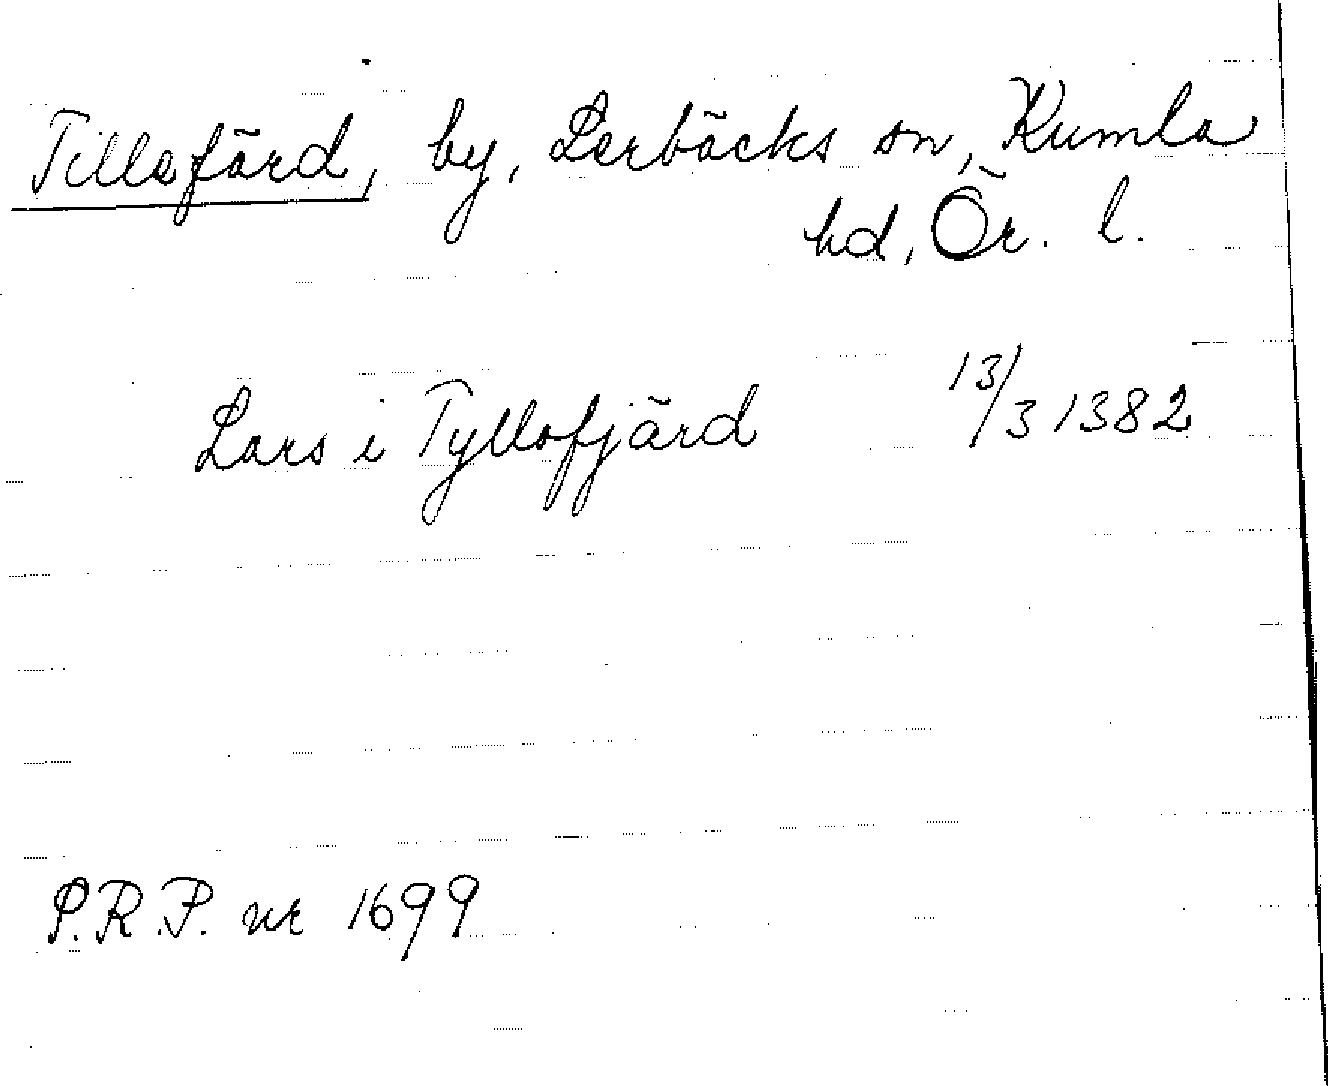 Tillafärd, by, Lerbäcks sn, Kumla
hd, Ör. l.
Lars i Tyllofjärd 13/3 1382
P.R.P. nr 1699